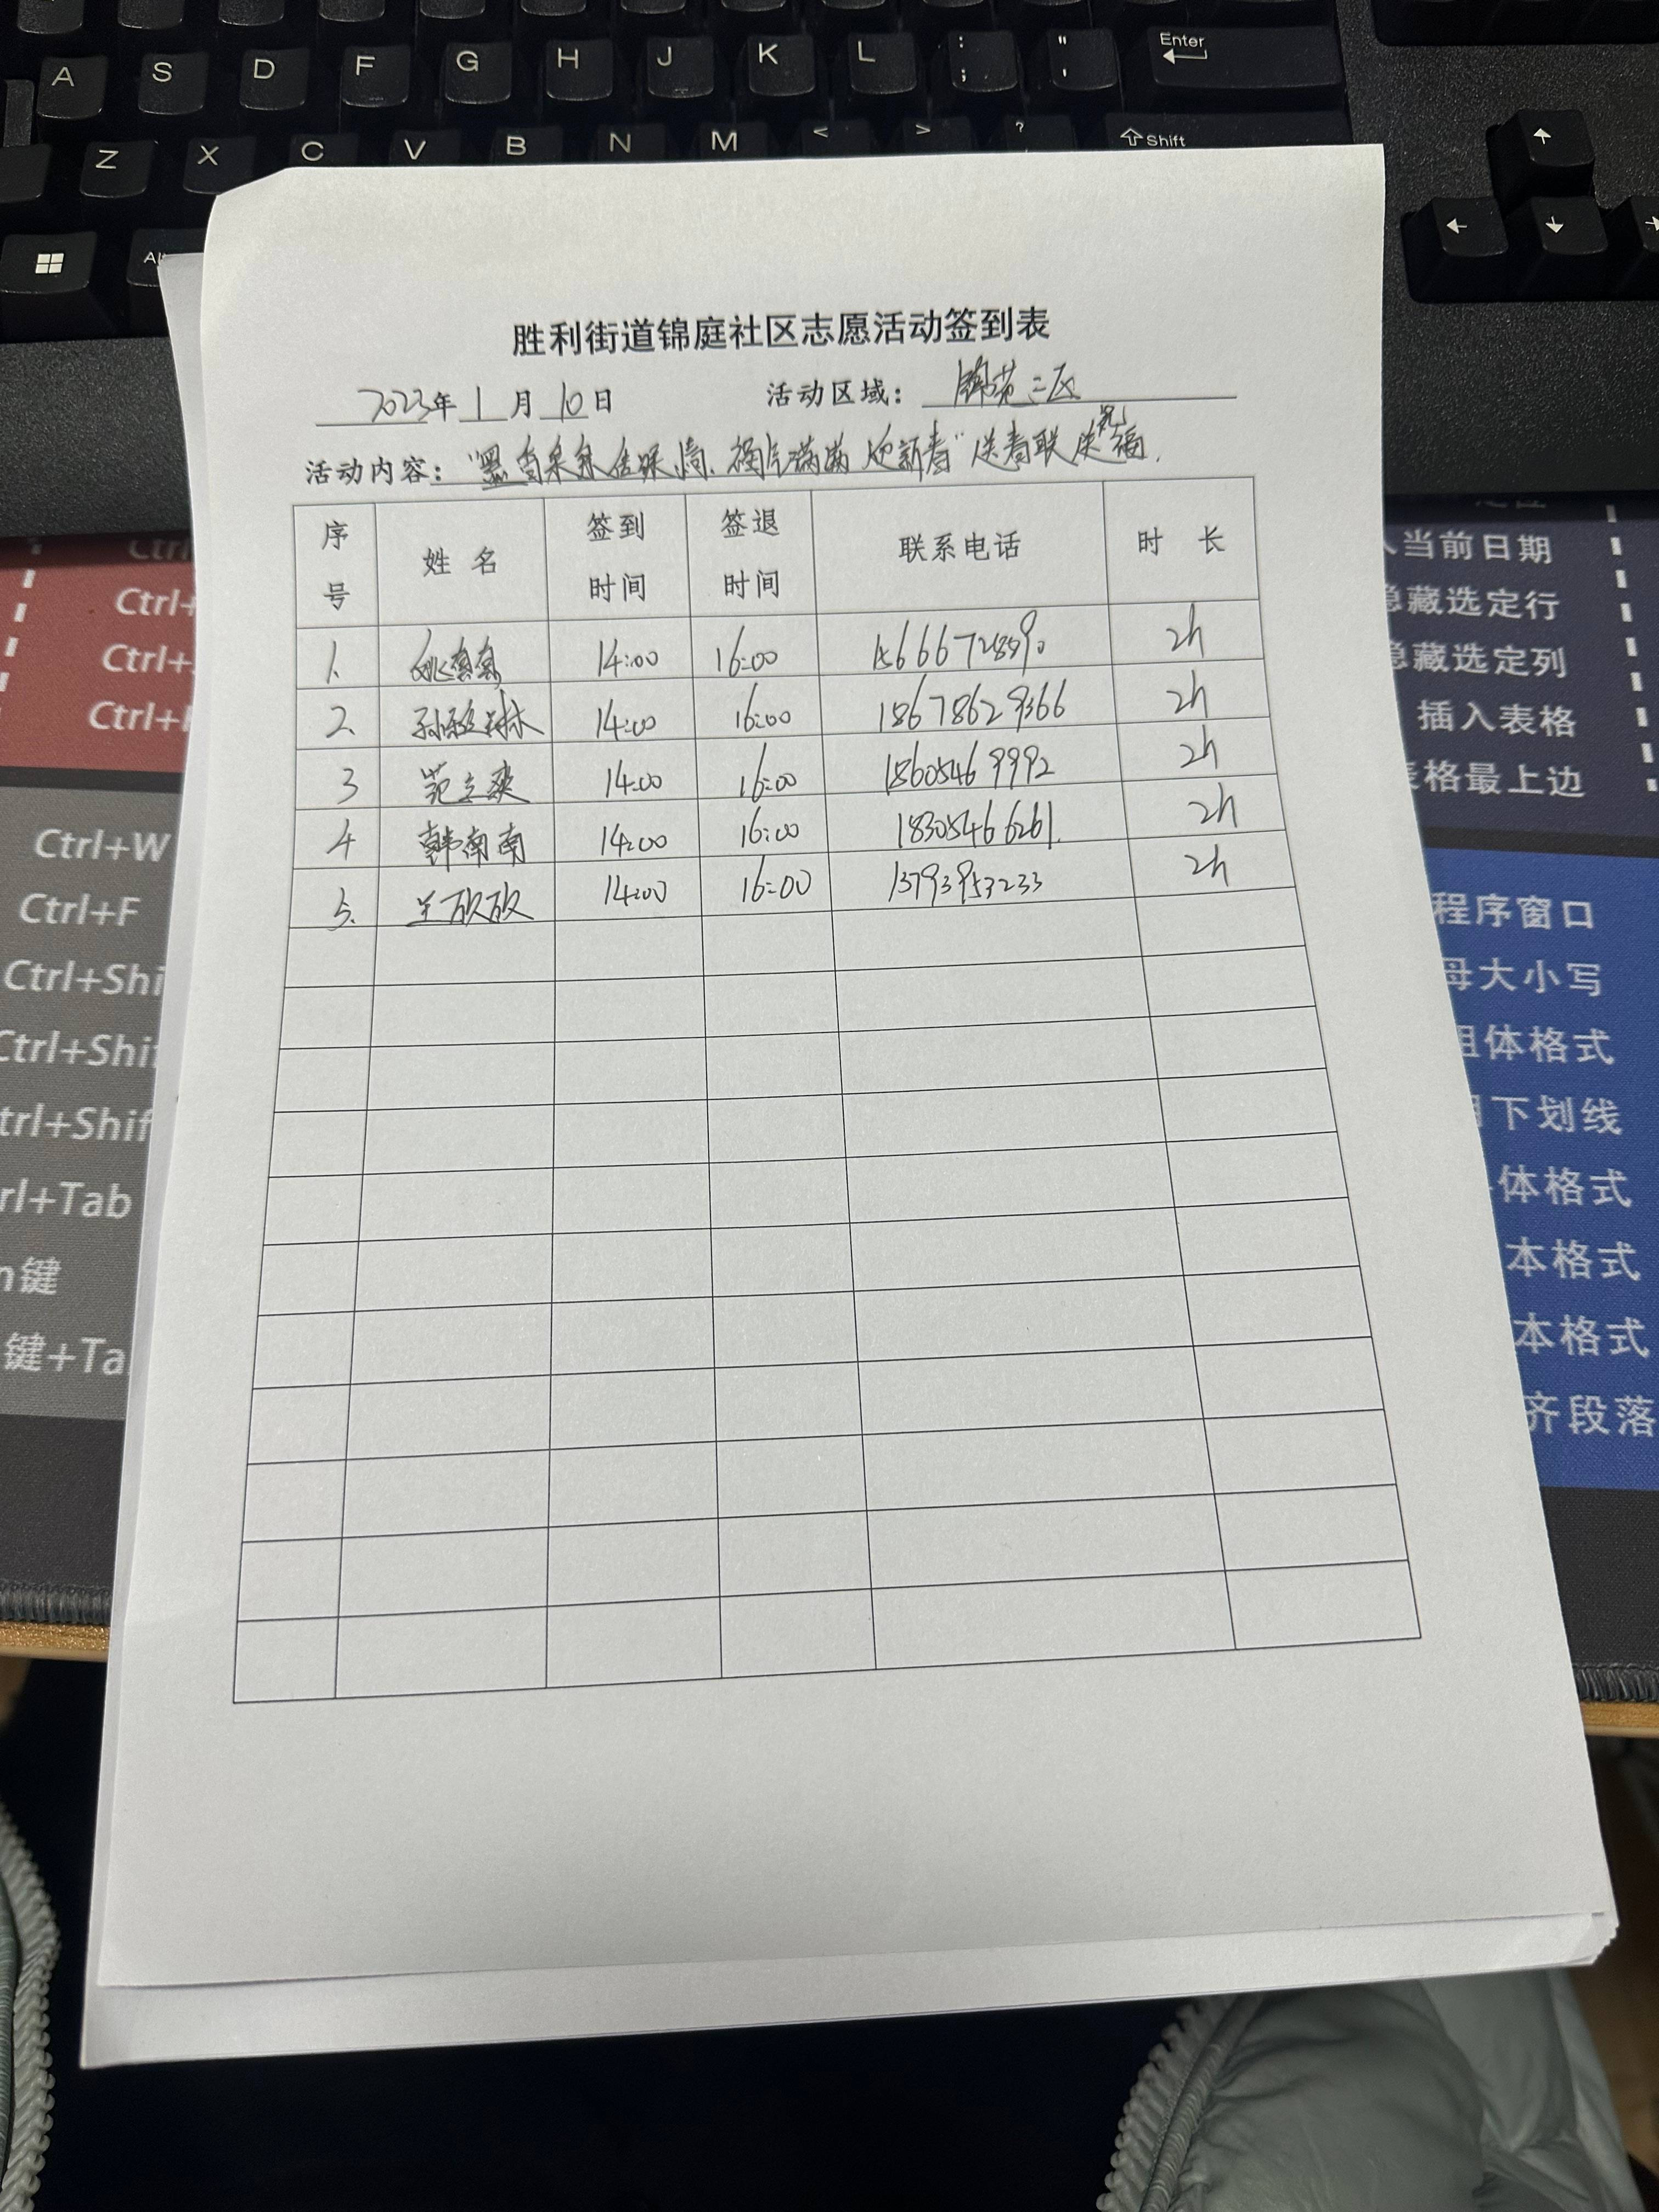 A S D F G H J K L : ; " ' Enter
Z X C V B N M < > ? Shift
Alt
胜利街道锦庭社区志愿活动签到表
2023年 1 月 10 日 活动区域: 锦苑三区
活动内容: 福气满满 迎新春"送春联送祝福.
序号 姓 名 签到时间 签退时间 联系电话 时 长
1. 14:00 16:00 2h
2. 14:00 16:00 18678629366 2h
3 范立爽 14:00 16:00 18605469992 2h
4 韩南南 14:00 16:00 18305466261. 2h
5. 14:00 16:00 13793953233 2h
Ctrl+
Ctrl+
Ctrl+
Ctrl+W
Ctrl+F
Ctrl+Shi
Ctrl+Shif
trl+Shif
rl+Tab
n键
键+Ta
当前日期
隐藏选定行
隐藏选定列
插入表格
表格最上边
程序窗口
母大小写
体格式
下划线
体格式
本格式
本格式
齐段落